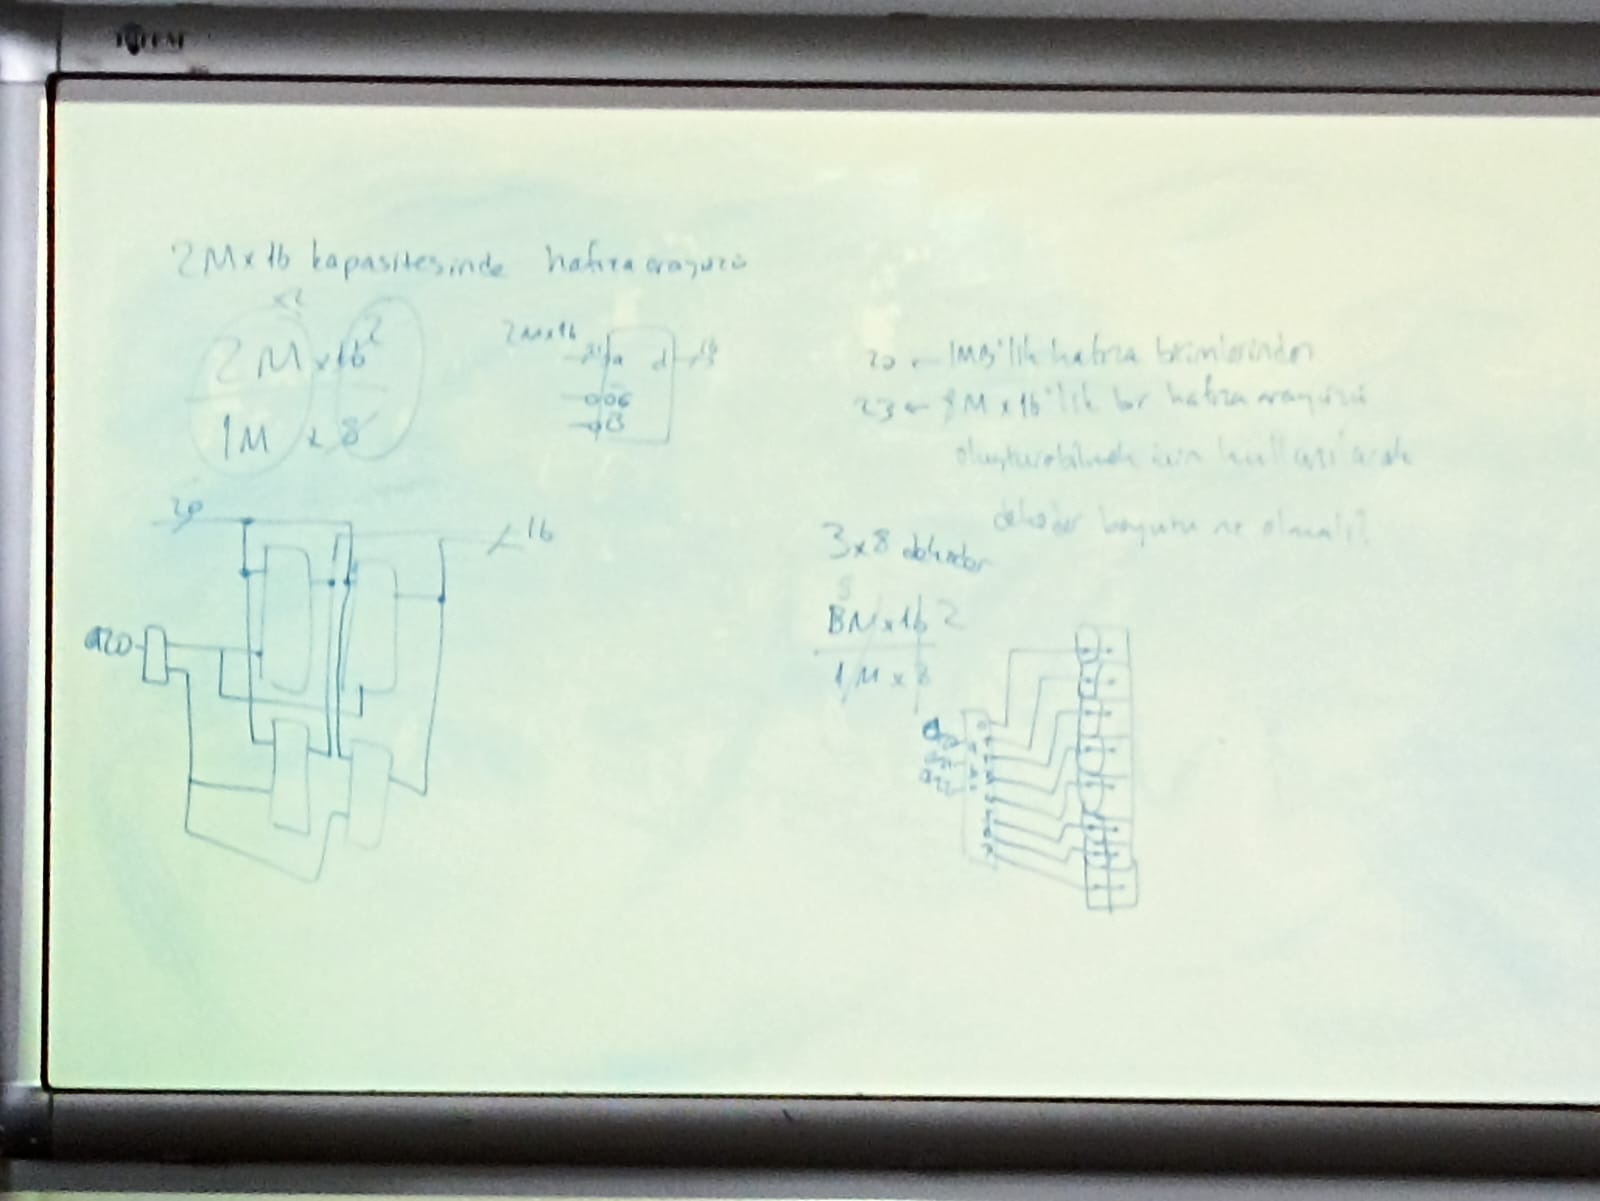 2M x 16 kapasitesinde hafıza arayüzü
x2
2M x 16 2
1M x 8
2Mx16
21 a d 16
20
16
a20
20 ← 1MB'lik hafıza birimlerinden
23 ← 8M x 16'lik bir hafıza arayüzü
oluşturabilmek için kullanılacak
dekoder boyutu ne olmalı?
3x8 dekoder
8
8M x 16 2
1M x 8
a20
a21
a22